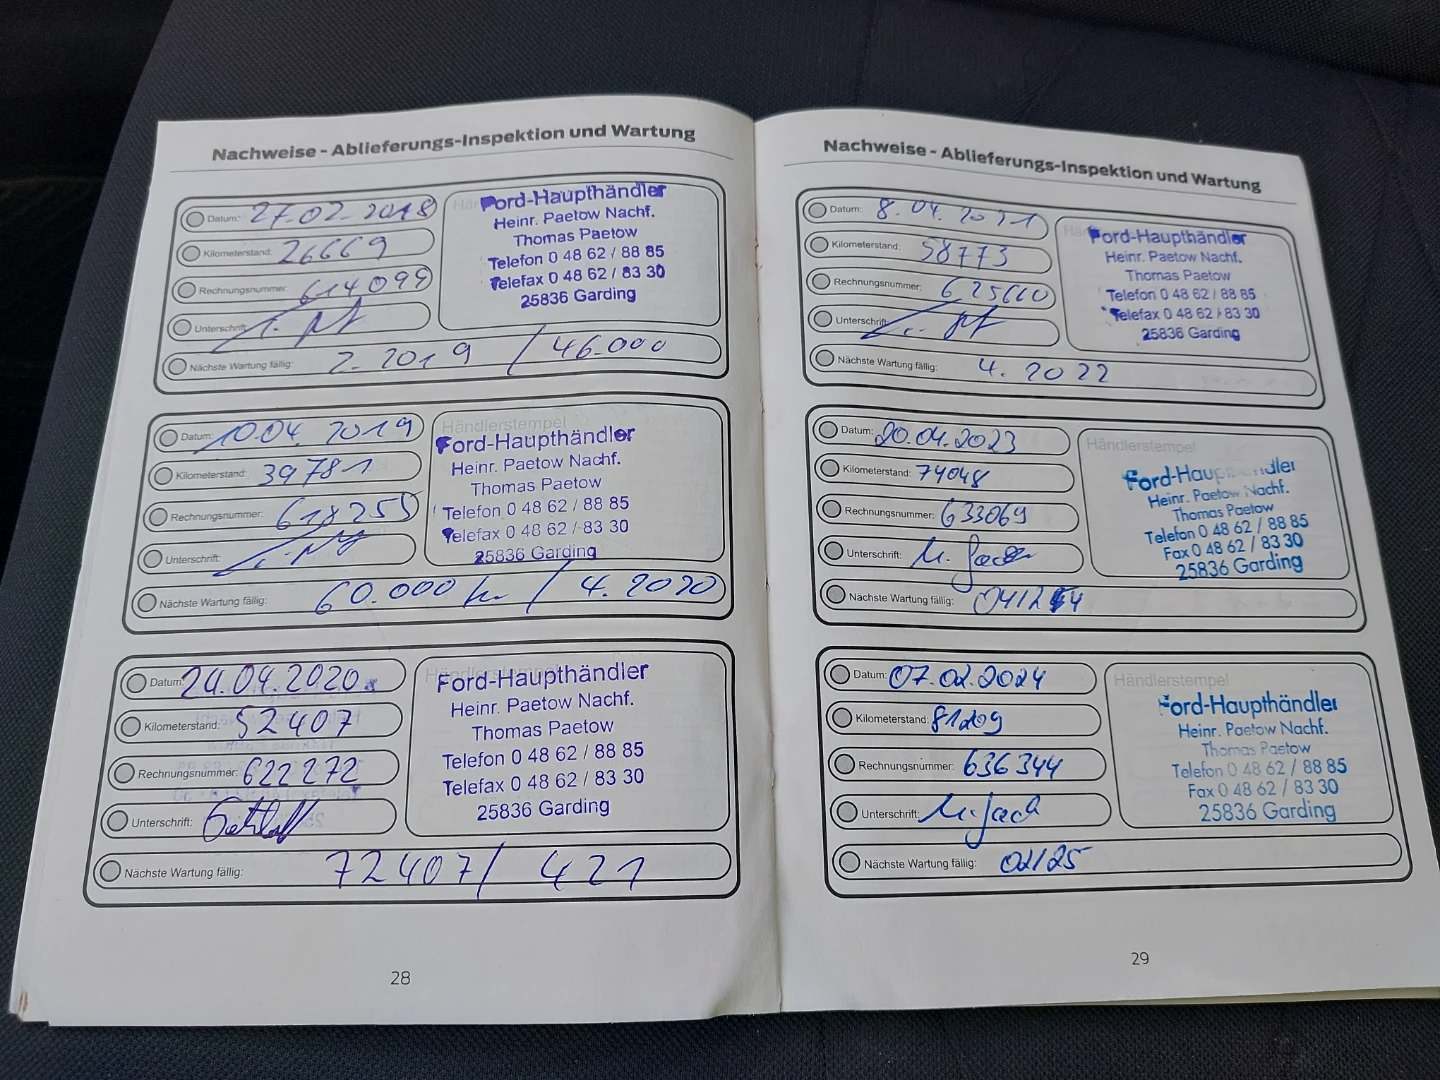 Nachweise - Ablieferungs-Inspektion und Wartung
Datum: 27.02.2018
Kilometerstand: 26669
Rechnungsnummer: 614099
Unterschrift:
Nächste Wartung fällig: 2.2019 / 46.000
Ford-Haupthändler
Heinr. Paetow Nachf.
Thomas Paetow
Telefon 0 48 62 / 88 85
Telefax 0 48 62 / 83 30
25836 Garding
Datum: 10.04.2019
Kilometerstand: 39781
Rechnungsnummer: 618255
Unterschrift:
Nächste Wartung fällig: 60.000 km / 4.2020
Händlerstempel
Ford-Haupthändler
Heinr. Paetow Nachf.
Thomas Paetow
Telefon 0 48 62 / 88 85
Telefax 0 48 62 / 83 30
25836 Garding
Datum: 24.04.2020
Kilometerstand: 52407
Rechnungsnummer: 622272
Unterschrift:
Nächste Wartung fällig: 72407 / 421
Händlerstempel
Ford-Haupthändler
Heinr. Paetow Nachf.
Thomas Paetow
Telefon 0 48 62 / 88 85
Telefax 0 48 62 / 83 30
25836 Garding
28
Nachweise - Ablieferungs-Inspektion und Wartung
Datum: 8.04.2021
Kilometerstand: 58773
Rechnungsnummer: 625660
Unterschrift:
Nächste Wartung fällig: 4.2022
Ford-Haupthändler
Heinr. Paetow Nachf.
Thomas Paetow
Telefon 0 48 62 / 88 85
Telefax 0 48 62 / 83 30
25836 Garding
Datum: 20.04.2023
Kilometerstand: 74048
Rechnungsnummer: 633069
Unterschrift:
Nächste Wartung fällig: 04/24
Händlerstempel
Ford-Haupthändler
Heinr. Paetow Nachf.
Thomas Paetow
Telefon 0 48 62 / 88 85
Fax 0 48 62 / 83 30
25836 Garding
Datum: 07.02.2024
Kilometerstand: 81209
Rechnungsnummer: 636344
Unterschrift:
Nächste Wartung fällig: 02/25
Händlerstempel
Ford-Haupthändler
Heinr. Paetow Nachf.
Thomas Paetow
Telefon 0 48 62 / 88 85
Fax 0 48 62 / 83 30
25836 Garding
29